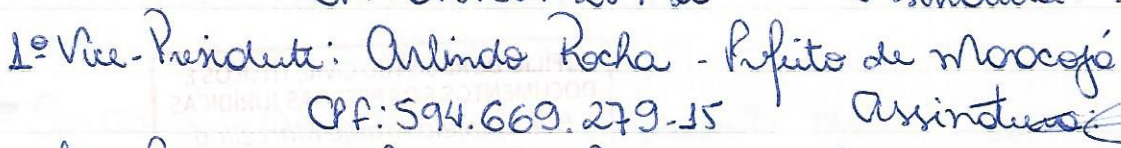 1º Vice-Presidente: Arlindo Rocha - Prefeito de Maracajá
CPF: 594.669.279-15 Assinatura: